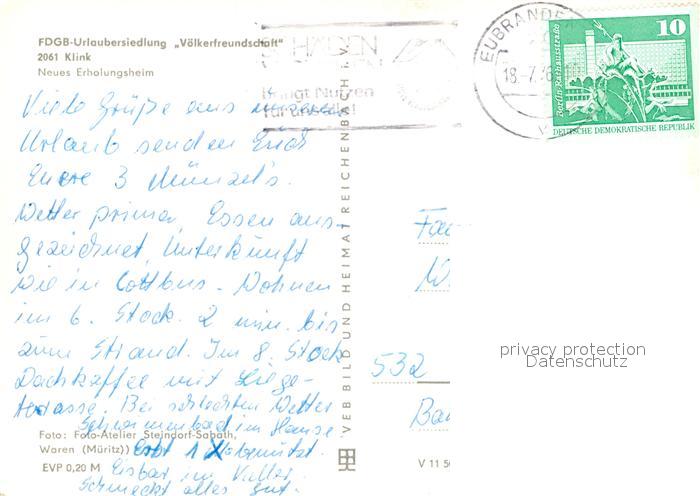 FDGB-Urlaubersiedlung „Völkerfreundschaft"
2061 Klink
Neues Erholungsheim
Viele Grüße aus
Urlaub senden Euch
Euere 3 Münzel's.
Wetter prima, Essen aus-
gezeichnet, Unterkünft
wie in Cottbus. Wohnen
im 6. Stock. 2 min. bis
zum Strand. Im 8. Stock
Dachkaffee mit Liege-
terasse. Bei schlechten Wetter
Schwimmbad im Hause
Erst 1 X
Eisbar im Keller
Schmeckt alles gut.
Foto: Foto-Atelier Steindorf-Sabath,
Waren (Müritz)
EVP 0,20 M
VEB BILD UND HEIMAT REICHENBACH i. V.
SCHÄDEN
bringt Nutzen
für uns alle!
EUBRANDEN
18.-7.
10
Berlin-Rathausstraße
DEUTSCHE DEMOKRATISCHE REPUBLIK
532
V 11 50
privacy protection
Datenschutz